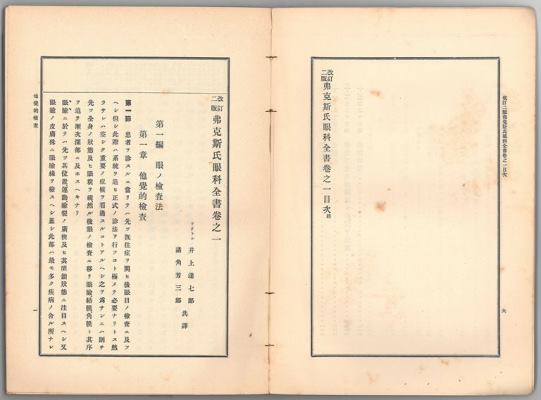 改訂二版弗克斯氏眼科全書卷之一目次
六
改訂二版 弗克斯氏眼科全書卷之一目次終
改訂二版 弗克斯氏眼科全書卷之一
ドクトル 井上達七郎
諸角芳三郎 共譯
第一編 眼ノ檢査法
第一章 他覺的檢査
第一節 患者ヲ診スルニ當リテハ先ツ既往症ヲ問ヒ後眼目ノ檢査ニ及フ
ヘシ但シ此際ハ系統ヲ逐ヒ正式ノ診法ヲ行フコト極メテ必要ナリトス然
ラサレハ容易ク重要ノ症候ヲ看過スルコトアルヘシ之ヲ爲サンニハ則チ
先ツ全身ノ狀態及ヒ眼貌ヲ視然ル後眼ノ檢査ニ移リ眼瞼結膜角膜ト其序
ヲ追ヒ漸次深部ニ及ホスヘキナリ
眼瞼ニ於テハ先ツ其位置運動瞼裂ノ廣狹及ヒ其閉鎖狀態ニ注目スヘシ又
眼瞼ノ皮膚殊ニ眼瞼緣ヲ檢スヘシ蓋シ此部ハ最モ多ク疾病ノ舍ル所ナレ
他覺的檢査
一